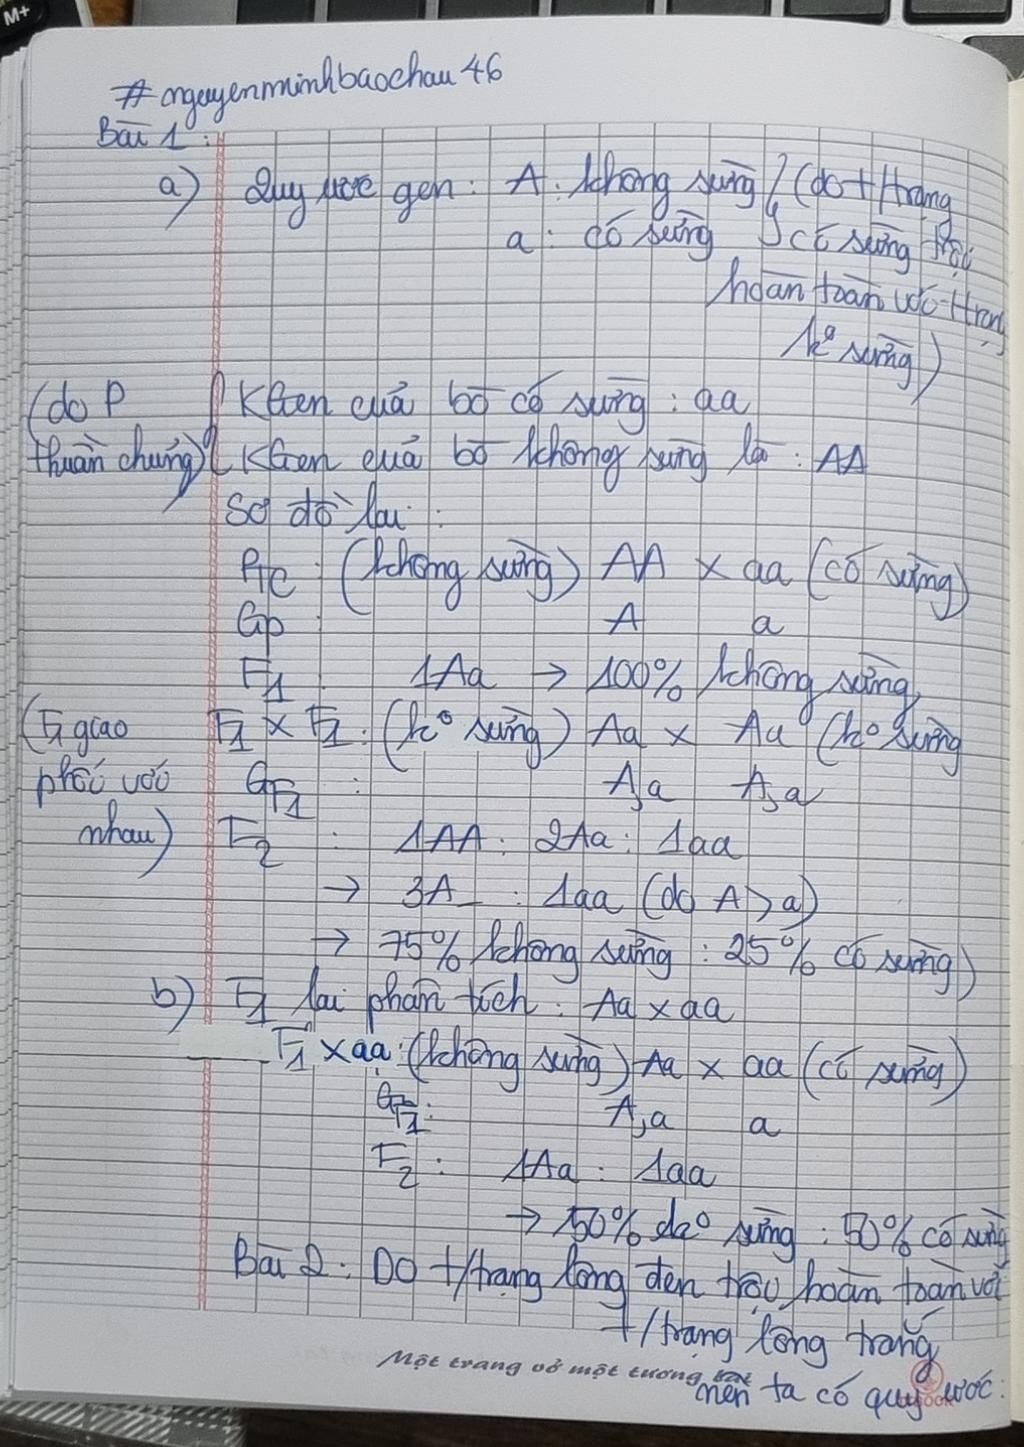 #nguyenminhbaochau46
Bài 1:
a) Quy ước gen: A: không sừng } (do t/trạng
a: có sừng có sừng trội
hoàn toàn với t/trạng
k° sừng)
(do P { KGen của bò có sừng: aa
thuần chủng) KGen của bò không sừng là: AA
Sơ đồ lai:
PTC: (không sừng) AA × aa (có sừng)
Gp: A a
F1: 1Aa → 100% không sừng
(F1 giao F1 × F1: (k° sừng) Aa × Aa (k° sừng
phối với GF1: A,a A,a
nhau) F2: 1AA: 2Aa: 1aa
→ 3A_ : 1aa (do A>a)
→ 75% không sừng: 25% có sừng)
b) F1 lai phân tích: Aa × aa
F1 × aa: (không sừng) Aa × aa (có sừng)
GF1: A,a a
F2: 1Aa: 1aa
→ 50% k° sừng: 50% có sừng
Bài 2: Do t/trạng lông đen trội hoàn toàn với
t/trạng lông trắng
Một trang vở một tương lai
nên ta có quy ước: